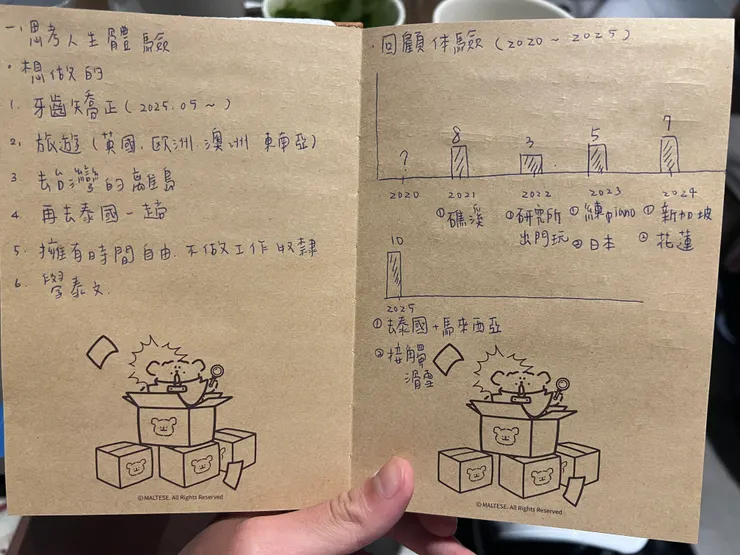 一、思考人生體驗
・想做的
1. 牙齒矯正(2025.05～)
2. 旅遊(英國.歐洲.澳洲 東南亞)
3 去台灣的離島
4 再去泰國一趟
5. 擁有時間自由.不做工作奴隸
6. 學泰文.
© MALTESE. All Rights Reserved
・回顧体驗(2020～2025)
? 8 3 5 7
2020 2021 2022 2023 2024
①礁溪 ①研究所 ①練piano ①新加坡
出門玩 ②日本 ②花蓮
10
2025
①去泰國+馬來西亞
②接觸
滑雪
© MALTESE. All Rights Reserved